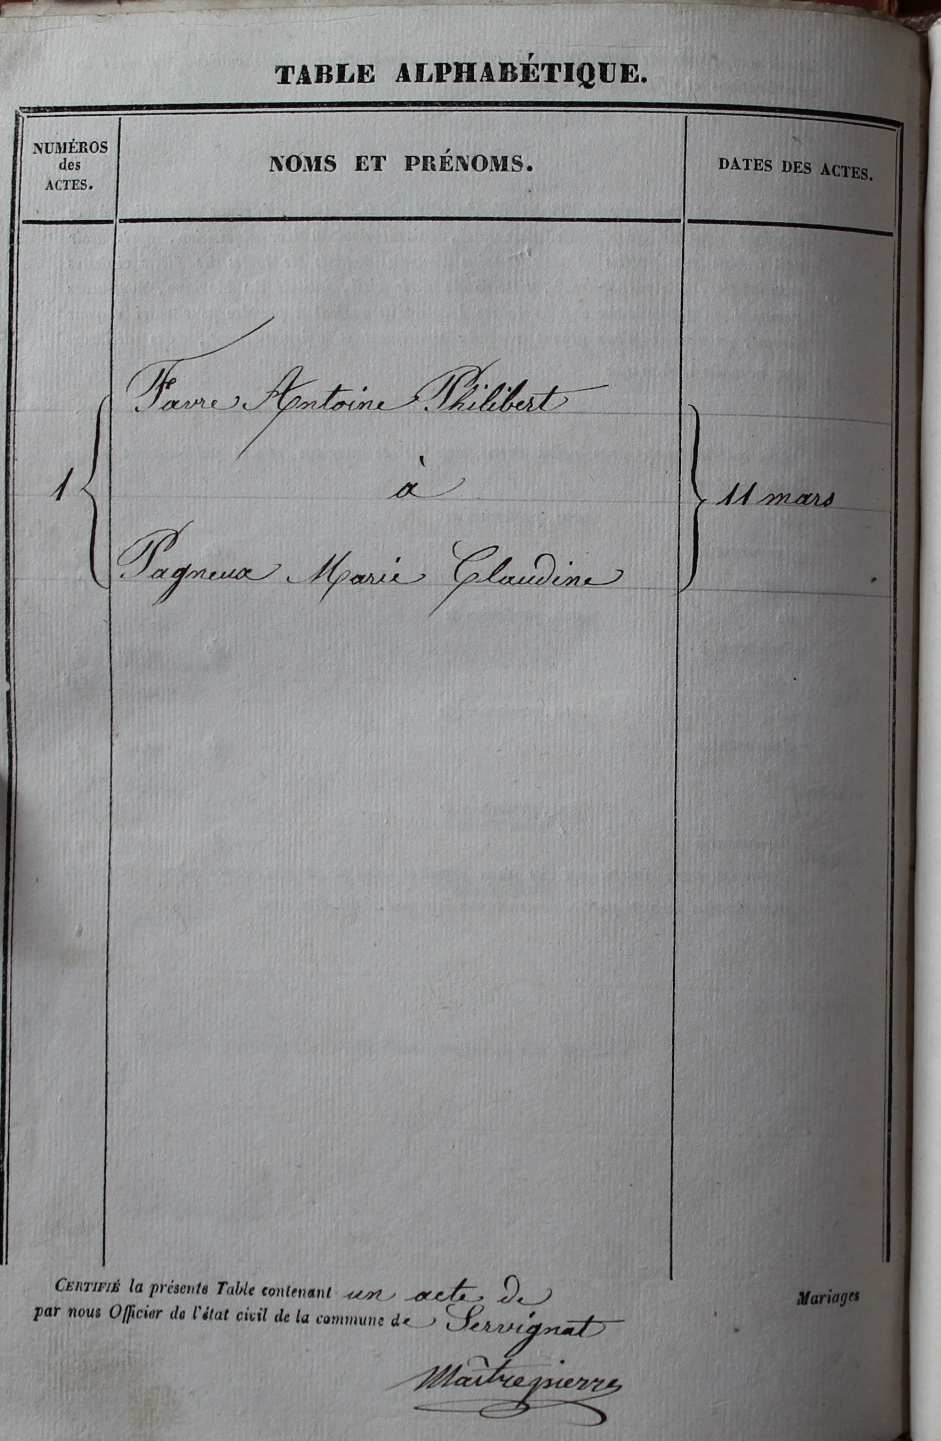 TABLE ALPHABÉTIQUE.
NUMÉROS
des
ACTES.
NOMS ET PRÉNOMS.
DATES DES ACTES.
Favre Antoine Philibert
1 à 11 mars
Pagneux Marie Claudine
CERTIFIÉ la présente Table contenant un acte de Mariages
par nous Officier de l'état civil de la commune de Servignat
Maîtrepierre